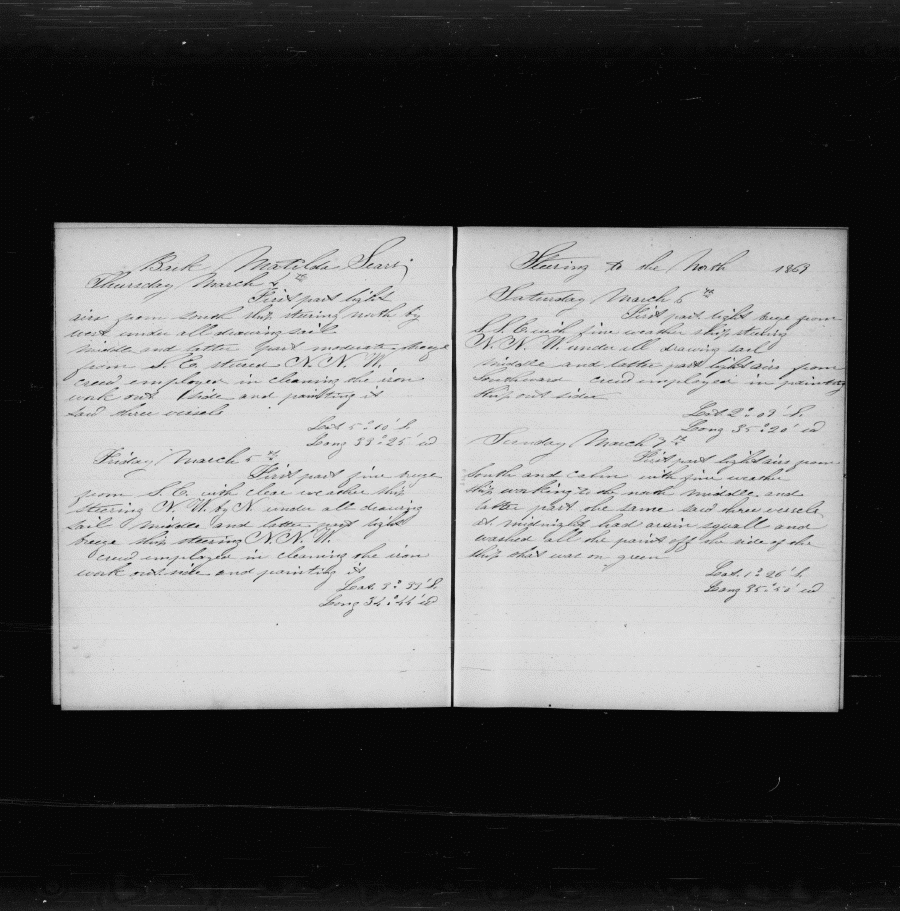 Bark Matilda Sears
Thursday March 4th
First part light
airs from south ship steering north by
west under all drawing sail
middle and latter part moderate
from S. E. steered N. N. W.
crew employed in cleaning the iron
work out side and painting it
Saw three vessels
Lat 5° 10' S.
Long 33° 25' W
Friday March 5th
First part fine breeze
from S. E. with clear weather ship
steering N. W. by N under all drawing
sail middle and latter part light
breeze ship steering N. N. W.
crew employed in cleaning the iron
work out side and painting it
Lat. 3° 39' S.
Long 34° 44' W
Steering to the North 1869
Saturday March 6th
First part light breeze from
S. S. E. with fine weather ship steering
N. N. W. under all drawing sail
middle and latter part light airs from
Southward crew employed in painting
ship out sides
Lat 2° 09' S.
Long 35° 20' W
Sunday March 7th
First part light airs from
South and calm with fine weather
ship working to the north middle and
latter part the same saw three vessels
at midnight had a rain squall and
washed all the paint off the side of the
ship that was on green
Lat. 1° 26' S.
Long 35° 50' W